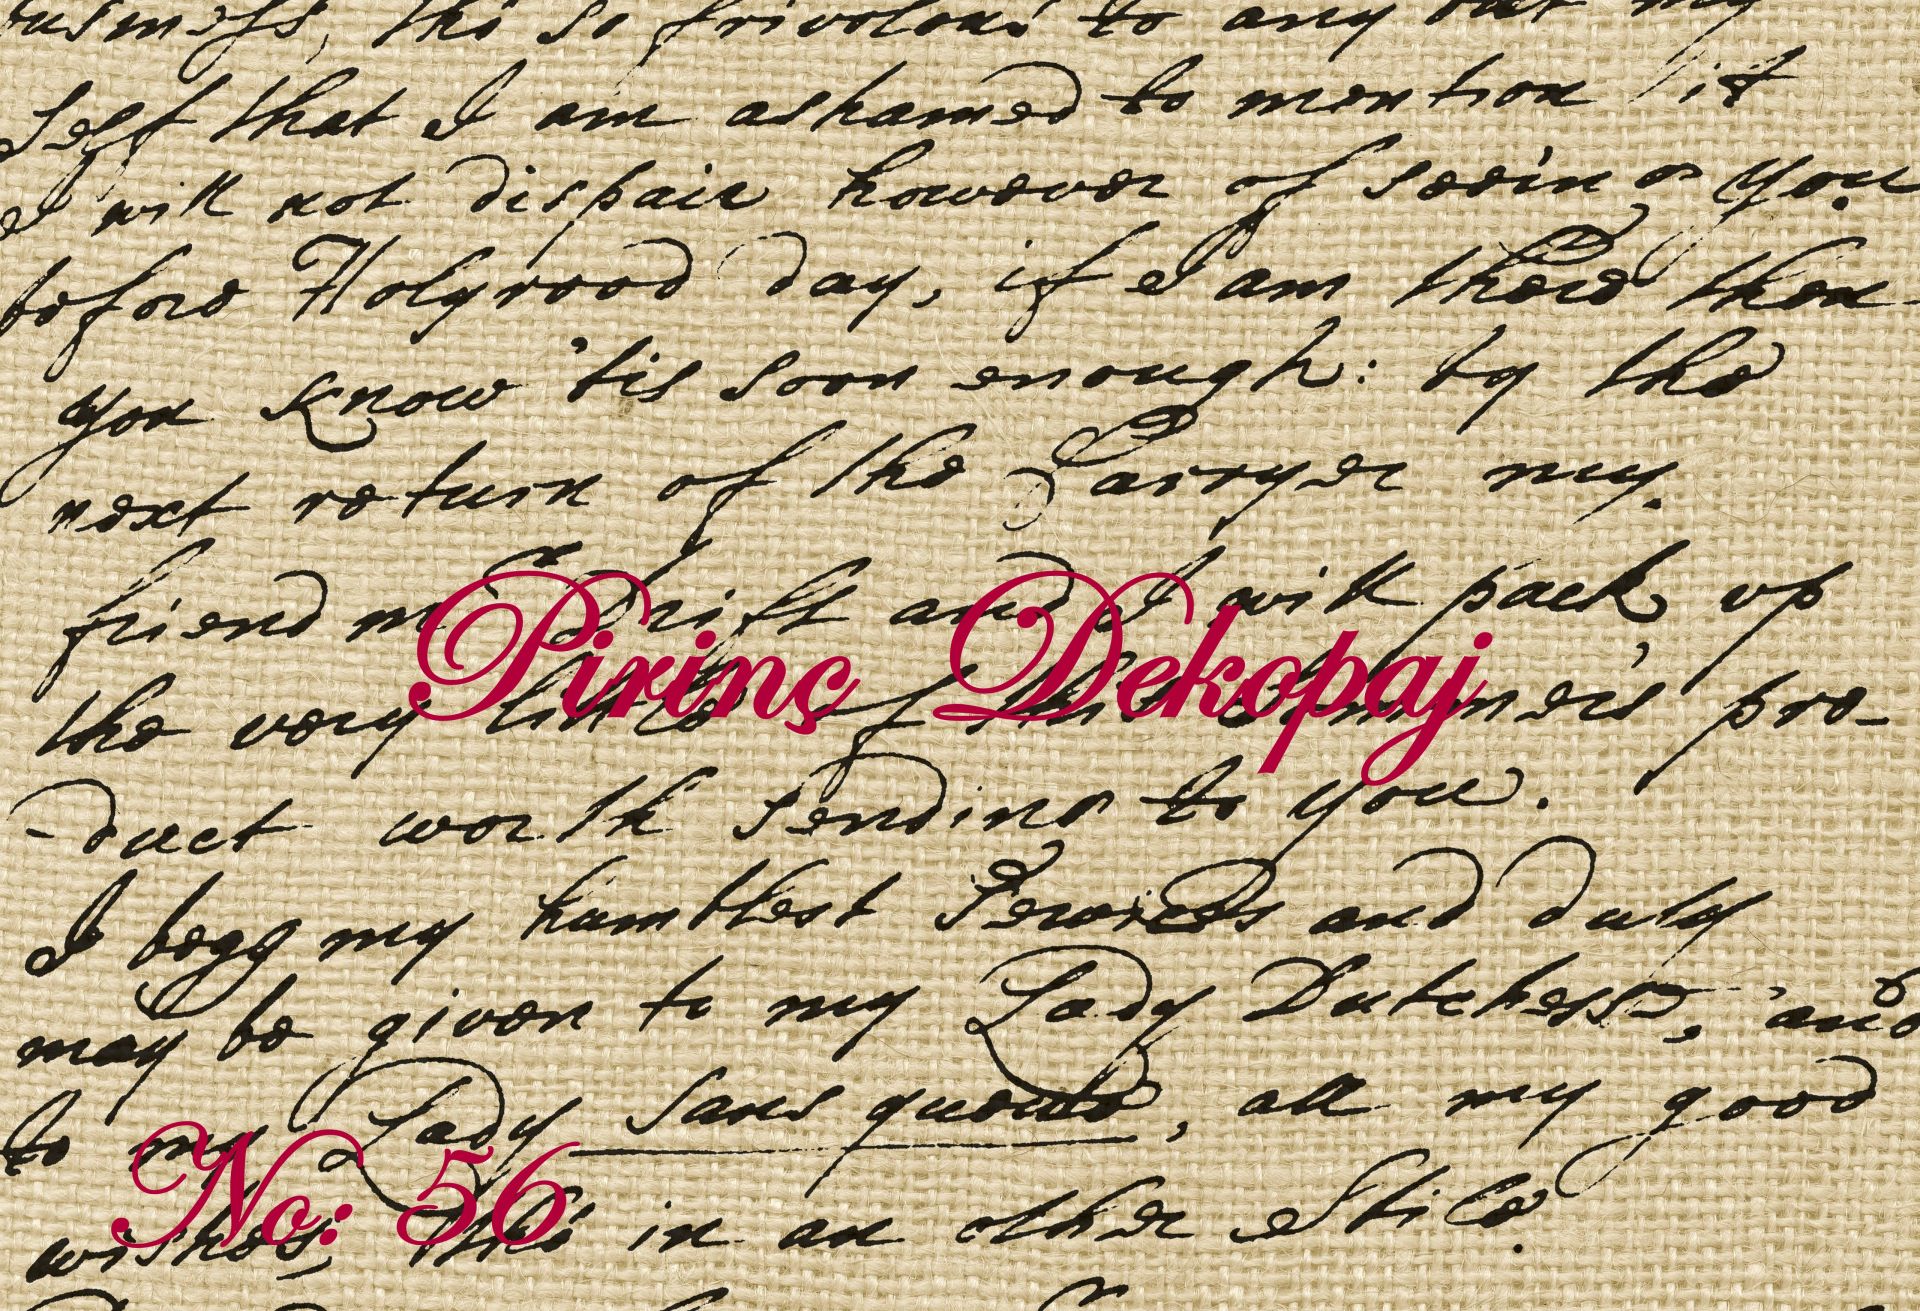 business, tho' so frivolous to any but my
self that I am ashamed to mention it
I will not dispair however of seeing you
before Holyrood day, if I am there then
you know 'tis soon enough: by the
next return of the Carryer my
friend Mr Drift and I will pack up
the very little of this Summer's pro-
-duct worth sending to you.
I begg my humblest Services and duty
may be given to my Lady Dutchess, and
to my Lady sans , all my good
wishes, tho' in an other Stile.
Pirinç Dekopaj
No: 56